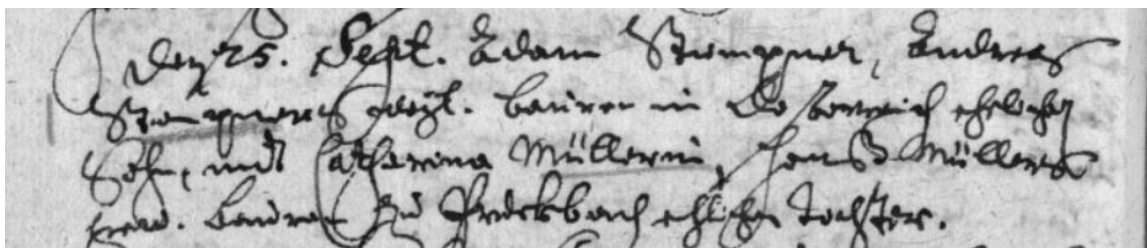 Den 25. Sept. Adam Stumpner, Andreas
Stumpners seel. bauren in Oesterreich ehelicher
Sohn, undt Catharina Müllerin, Hanß Müllers
bauren zu ehelichen Tochter.